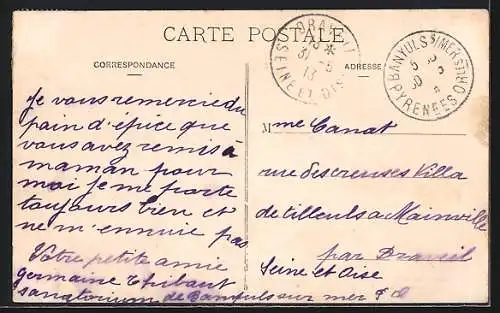 CARTE POSTALE
CORRESPONDANCE
ADRESSE
DRAVEIL
SEINE ET OISE
31 - 5
13
BANYULS S/MER
PYRENEES ORLES
Je vous remercie du
pain d'épice que
vous avez remis à
maman pour
moi je me porte
toujours bien et
ne m'ennuie pas
Votre petite amie
germaine Thibaut
sanatorium de Banyuls sur mer P O
Mme Canat
rue des creuses Villa
de tilleuls a Mainville
par Draveil
Seine et Oise